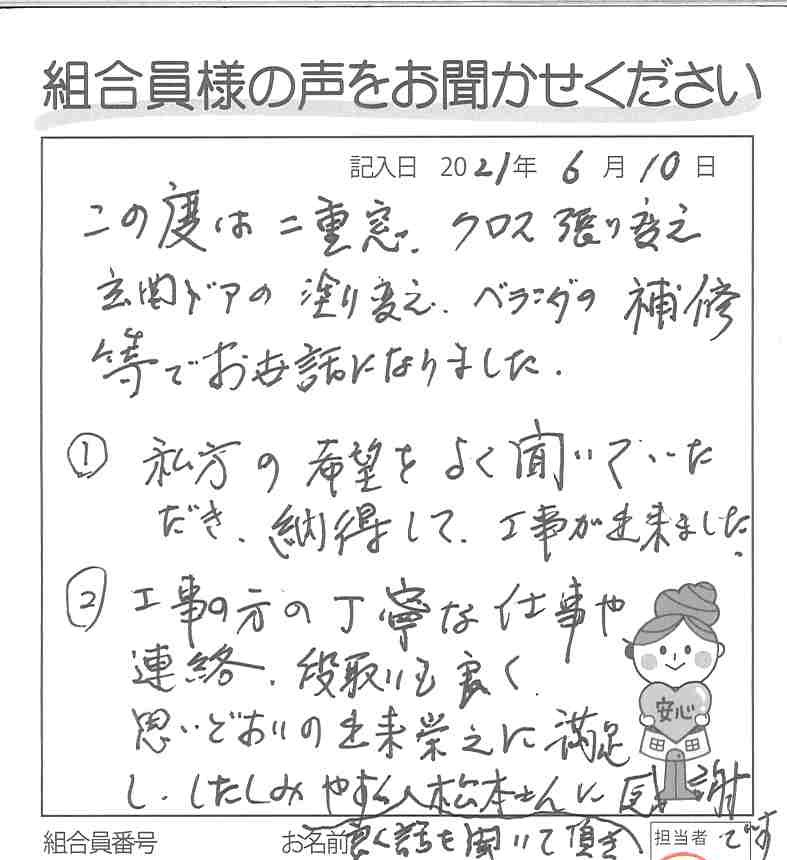 組合員様の声をお聞かせください
記入日 2021年 6月 10日
この度は二重窓、クロス張り変え
玄関ドアの塗り変え、ベランダの補修
等でお世話になりました。
① 私方の希望をよく聞いていた
だき、納得して、工事が出来ました。
② 工事の方の丁寧な仕事や
連絡、段取りも良く
思いどおりの出来栄えに満足
し、したしみやすく、松本さんに感謝
安心
良く話を聞いて頂き
です
組合員番号 お名前 担当者